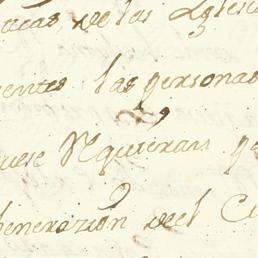 ticas, de las Yglesi
entes las personas
quese Rquieran p
beneracion del C